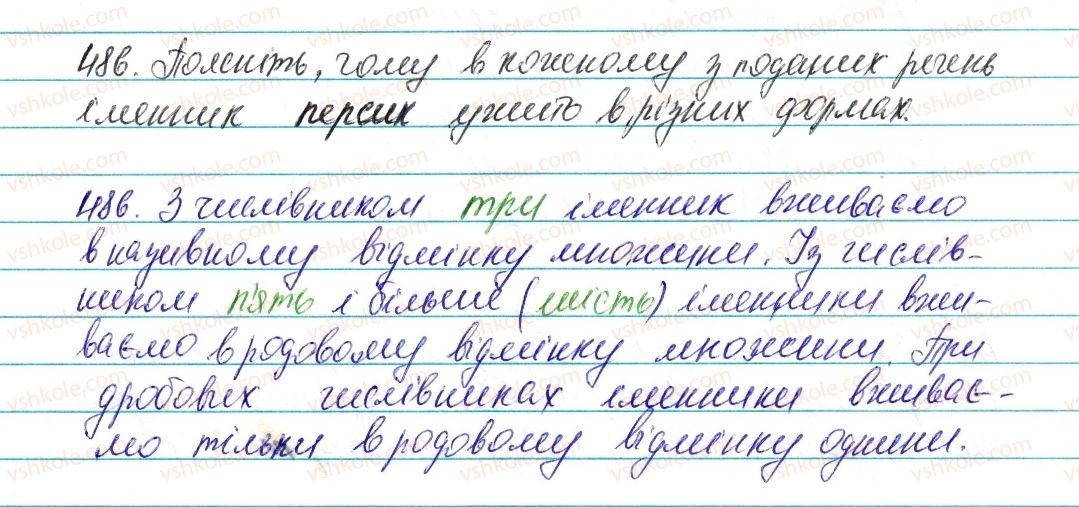 486. Поясніть, чому в кожному з поданих речень
іменник персик ужито в різних формах.
486. З числівником три іменник вживаємо
в називному відмінку множини. Із числів-
ником п'ять і більше (шість) іменники вжи-
ваємо в родовому відмінку множини. При
дробових числівниках іменники вживає-
мо тільки в родовому відмінку однини.